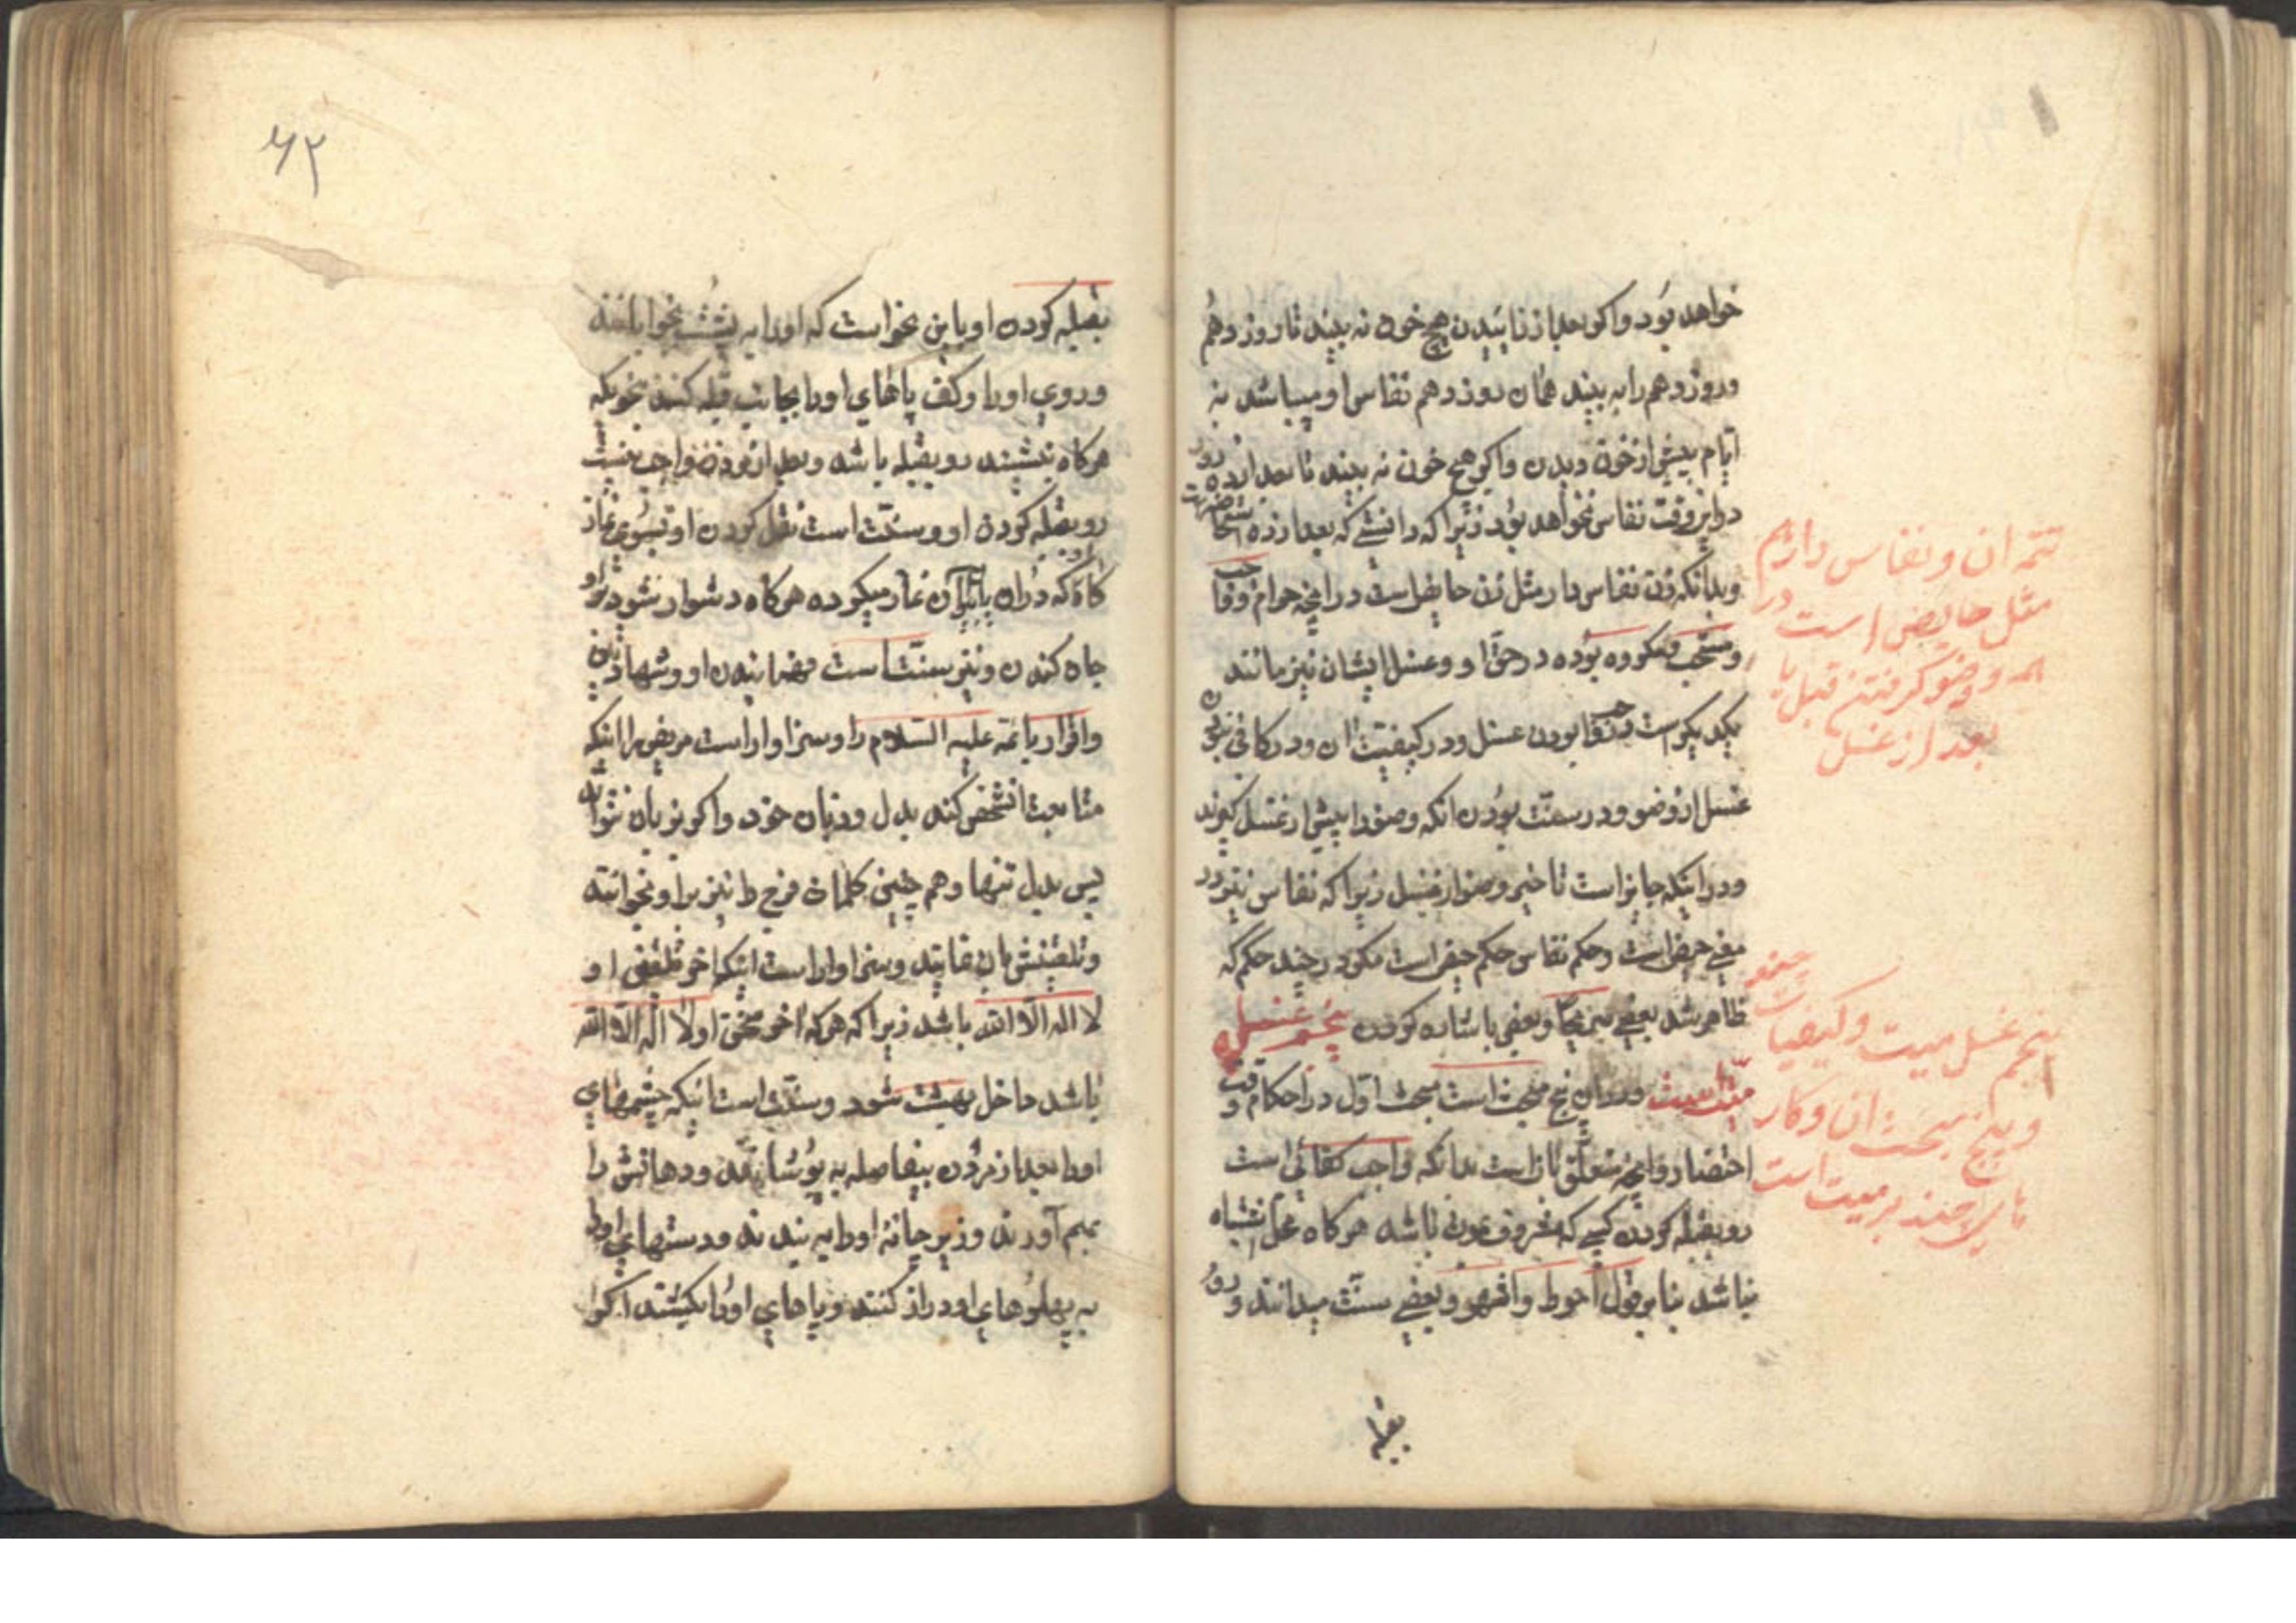 خواهد بود واکر بعد از زائیدن هیچ خون نه بیند تا روز دهم
وروز دهم را به بیند همان روز دهم نفاس او میباشد نه
ایام پیش از خون دیدن واکر هیچ خون نه بیند تا بعد از ده روز
در این وقت نفاس نخواهد بود زیرا که دانستی که بعد از ده استحاضه است
وبدانکه زن نفاس دار مثل زن حایض است در انچه حرام وواجب
ومستحب ومکروه بوده در حق او وغسل ایشان نیز مانند
یکدیکر است در واجب بودن غسل ودر کیفیت ان ودر کافی نبودن
غسل از وضو ودر سنت بودن انکه وضو را پیش از غسل کیرند
ودر اینکه جایز است تاخیر وضو از غسل زیرا که نفاس نیز در
معنی حیض است وحکم نفاس حکم حیض است مکر در چند حکم که
ظاهر شد بعضی وبعضی باشاره کردن پنجم غسل
میت است ودران پنج مبحث است مبحث اول در احکام وقت
احتضار وانچه متعلق بان است بدانکه واجب کفائی است
روبقبله کردن کسی که مشرف بموت باشد هرکاه محل اشتباه
نباشد بنا بر قول احوط واشهر وبعضی سنت میدانند ورو
بقبله
تتمه ان ونفاس دار هم
مثل حایض است در
همه ووضو کرفتن قبل یا
بعد از غسل
پنجم غسل میت وکیفیات
وپنج مبحث ان وکار
میت است
۶۲
بقبله کردن او باین نحو است که او را به پشت بخوابانند
وروی او را وکف پاهای او را بجانب قبله کنند بنحویکه
هرکاه بنشیند روبقبله باشد وبعد از مردن واجب نیست
روبقبله کردن او وسنت است نقل کردن او بسوی نماز
کاه که دران یا بران نماز میکرده هرکاه دشوار شود بر او
جان کندن ونیز سنت است فهمانیدن او وشهادتین
واقرار بائمه علیه السلام را وسزاوار است مریض را اینکه
متابعت انشخص کند بدل وزبان خود واکر بزبان نتواند
پس بدل تنها وهم چنین کلمات فرج را نیز بر او بخوانند
وتلقینش بان نمایند وسزاوار است اینکه اخر تلقین او
لا اله الا الله باشد زیرا که هرکه اخر سخن او لا اله الا الله
باشد داخل بهشت شود وسنت است اینکه چشمهای
او را بعد از مردن بیفاصله به پوشانند ودهانش را
بهم آورند وزیر چانه او را به بندند ودستهای او را
به پهلوهای او دراز کنند وپاهای او را بکشند اکر